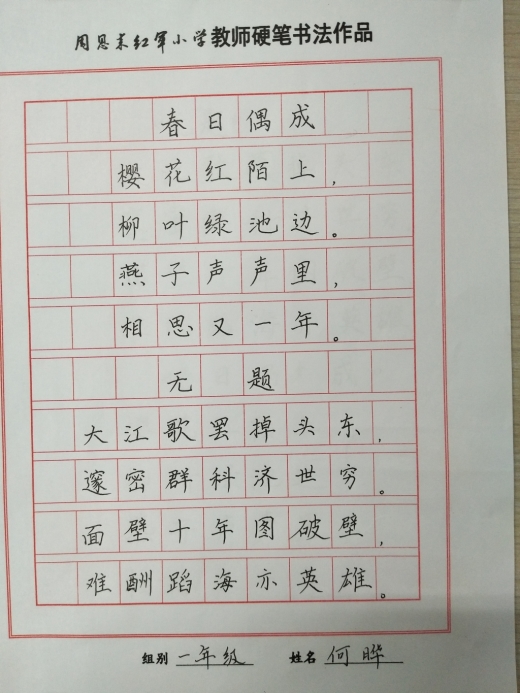 周恩来红军小学教师硬笔书法作品
春日偶成
樱花红陌上，
柳叶绿池边。
燕子声声里，
相思又一年。
无题
大江歌罢掉头东，
邃密群科济世穷。
面壁十年图破壁，
难酬蹈海亦英雄。
组别 一年级 姓名 何晔